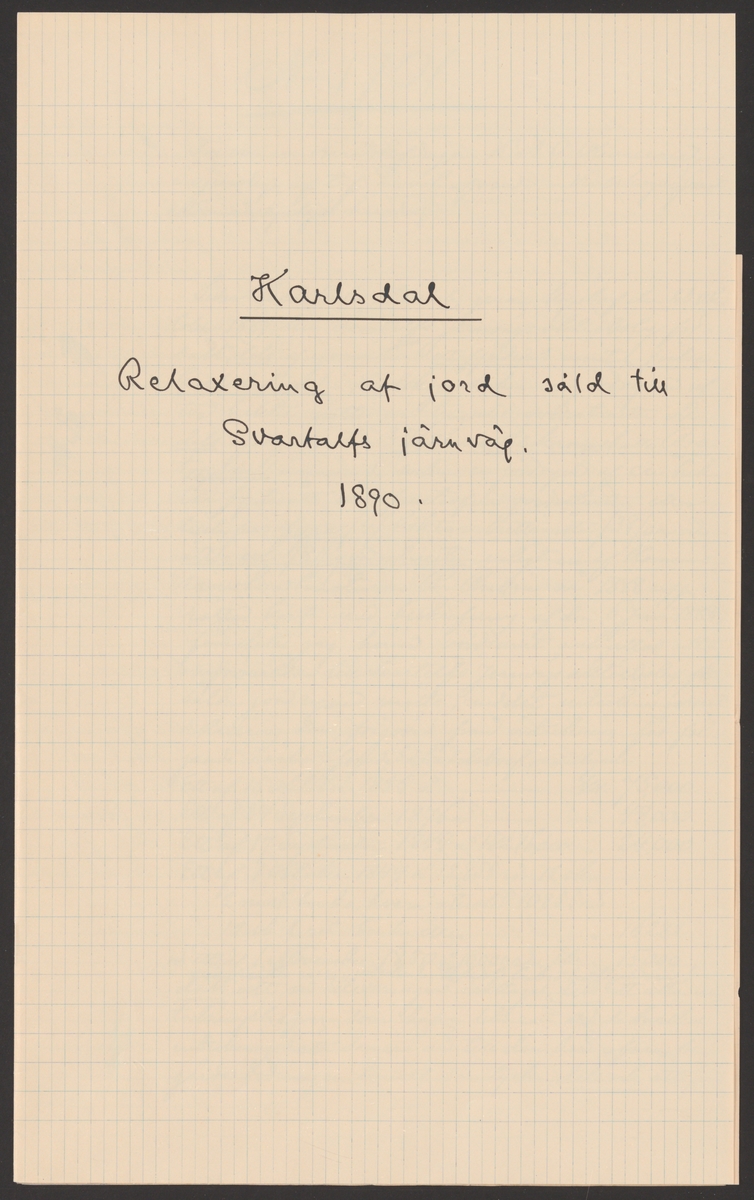 Karlsdal
Relaxering af jord såld till
Svartalfs järnväg.
1890.